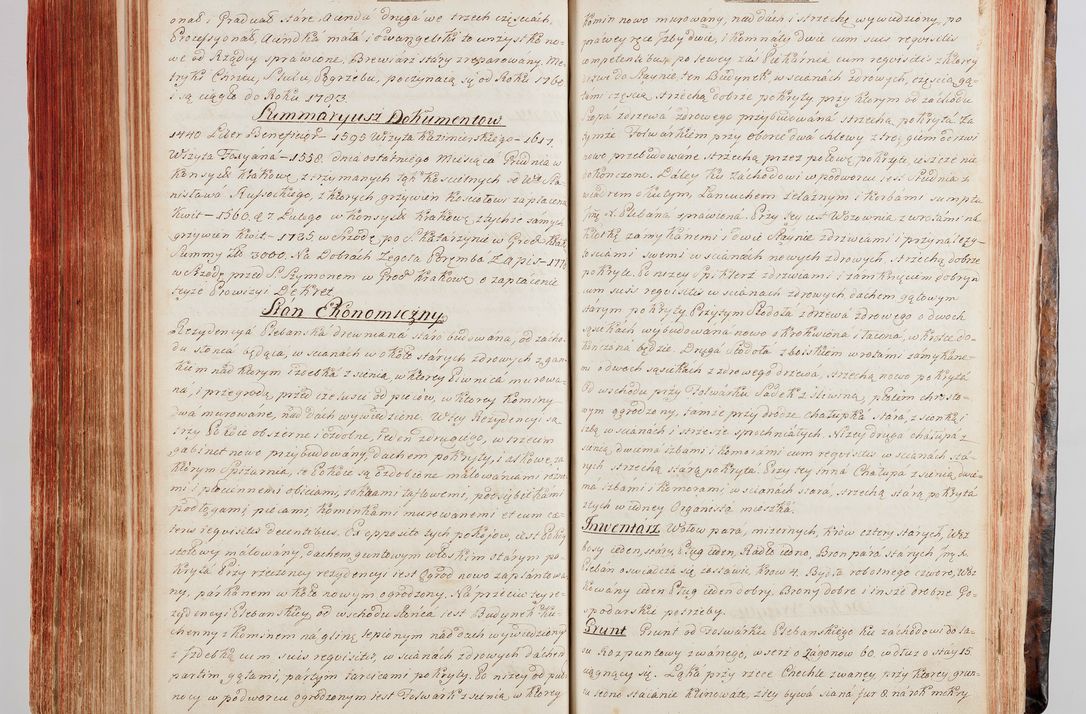 onał i Graduał stáre, Acenda druga we trzech częsciach,
Processyonał, Acendka mała i Ewangeliki to wszystko no-
we od Rządcy sprawione, Brewiarz stáry zreparowany. Me-
tryka Chrztu, Szlubu, Pogrzebu, poczynaią się od Roku 1760
i są ciągłe do Roku 1783.
Summáryusz Dokumentow
1440 Liber Beneficior – 1595 Wizyta Kazimierskiego – 1617.
Wizyta Foxyána – 1558. dnia ostatniego Miesiącá Grudnia w
Konsystr Krakows. z trzymanych Kościelnych od
nisława z ktorych grzywien Kosciołowi zapłacona
Kwit – 1560. d 7 Lutego w Konsystr Krakows. z tychże samych
grzywien Kwit – 1735 w Srzodę po S. Katarzynie w Grod Krak.
Summy Złp 3000. Na Dobrach Zegota Poremba Zapis – 1770
w Srzodę przed S. Szymonem w Grod Krakows. o zapłacenie
teyże Prowizyi Dekret.
Stan Ekonomiczny
Rezydencya Plebanská drewniana stáro budowána, od zácho-
du słonca będąca, w scianach w około stárych zdrowych z gan-
kiem nad ktorym izdebka z sienia, w ktorey Piwnica murowa-
na, i przegroda przed czelusci od piecow, w ktorey Kominy
dwa murowane, nad dach wywiedzione. W tey Rezydencyi są
trzy Pokoie obszerne i ozdobne, ieden z drugiego, w trzecim
gabinet nowo przybudowany, dachem pokryty, i alkowę, za
ktorym Spiżarnia, te Pokoie są ozdobione malowaniami rożne-
mi i płociennemi obiciami, z oknami tafloweni, podsiębitkami
podłogami piecami, Kominkami murowanemi et cum cæ-
teris requisitis decentibus. Ex opposito tych pokoiow, iest Pokoy
stołowy málowany, dachem guntowym włoskim stárym po-
kryty. Przy rzeczoney rezydencyi iest Ogrod nowo zaplántowa-
ny, parkánem w koło nowym ogrodzony. Na przeciw tey re-
zydencyi Plebanskiey, od wschodu słonca iest Budynek Ku-
chenny z Kominem na glinę lepionym nad dach wywiedziony
z Izdebką cum suis requisitis, w scianach zdrowych dachem
partim gątami, partim tarcicami pokryty. Po niżey od puł-
nocy w podworcu ogrodzonym iest Folwark z sienią, w ktorey
Komin nowo murowany, nad dach i strzechę wywiedziony, po
prawey ręce Izby dwie, i Komnaty dwie cum suis requisitis
competentibus, po lewey zas Piekarnia cum requisitis z ktorey
drzwi do Stayni, ten Budynek w scianach zdrowych, częscią gą-
tami częscią strzechą dobrze pokryty przy ktorym od zachodu
Szopa z drzewa zdrowego przybudowana strzechą pokryta. Za
tymże Folwarkiem przy oborze dwa chlewy z drągiem do zwi
nowo przebudowane strzechą przez połowę pokryte ieszcze nie
dokonczone. Daley ku zachodowi w podworcu iest Studnia z
wiadrem kutym, Łancuchem żelaznym i Korbami sumptu
Jmć X. Plebana sprawiona. Przy tey iest Wozownia z wrotami na
kłotkę zamykanemi i dwie Staynie z drzwiami i przynależy-
tosciami swemi w scianach nowych zdrowych, strzechą dobrze
pokryte. Po niżey Spiklerz z drzwiami i zamknięciem dobrym
cum suis requisitis w scianach zdrowych dachem gątowym
stárym pokryty. Przy tym Stodoła z drzewa zdrowego o dwoch
sąsiekach wybudowana nowo okrokwiona i łacona, w krotce do-
kończona będzie. Druga Stodoła z boiskiem wrotami zamykane-
mi o dwoch sąsiekach z zdrowego drzewa, strzechą nowo pokrytá.
Od wschodu przy Folwarku Sadek z sliwiną, płotem chrosto-
wym ogrodzony, tamże przy drodze chałupka stara, z sionką i
izbą w scianach i strzesie spróchniałych. Niżey druga chałupa z
sienią, dwiema izbami i Komorami cum requisitis w scianach stá-
rych strzechą starą pokryta. Przy tey inna Chałupa z sienią, dwie-
ma izbami i Komorami w scianach stará, strzechą starą pokrytá
z tych w iedney Organista mieszka.
Inwentarz Wołow para, miernych, Krow cztery stárych, Woz
bosy ieden, stáry, Pług ieden, Radło iedno, Bron para stárych, Jmć X.
Pleban oswiadcza się zostawic, Krow 4. Bydła robotnego czworo, Woz
Kowany ieden Pług ieden dobry, Brony dobre i insze drobne Go-
spodarskie potrzeby.
Grunt Grunt od Folwarku Plebanskiego ku zachodowi do la-
su Rozpuntowy zwánego, w szerz o Zagonow 60. w dłuż o stay 15
ciągnący się. Łąka przy rzece Chechle zwaney, przy ktorey grun-
tu iedno staianie klinowate, z tey bywa siana fur 8. na rok mokry